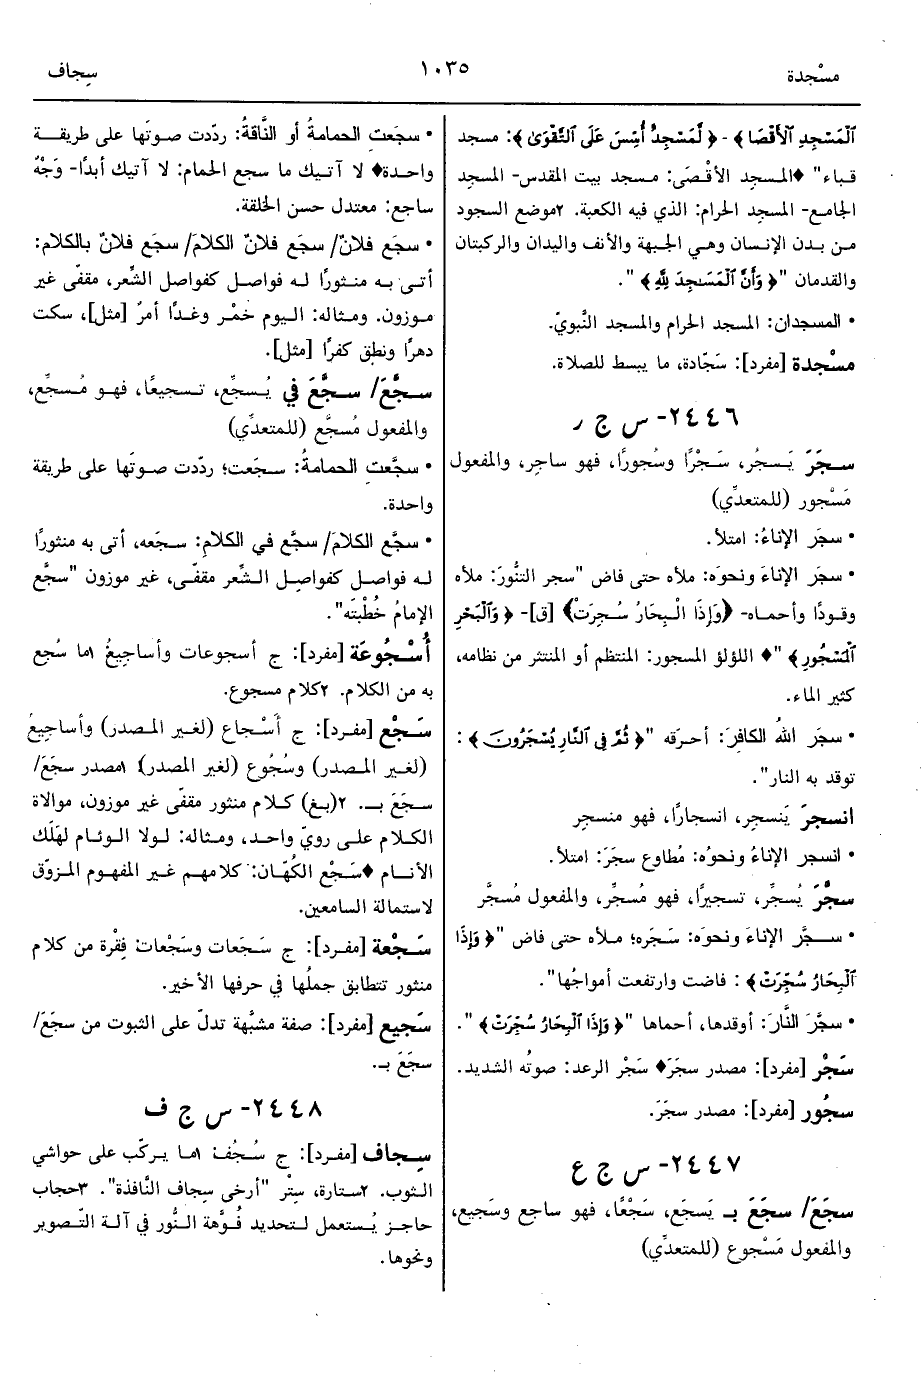 مسْجدة
١٠٣٥
سِجاف
ٱلْمَسْجِدِ ٱلْأَقْصَا﴾ - ﴿لَّمَسْجِدٌ أُسِّسَ عَلَى ٱلتَّقْوَىٰ﴾: مسجد
قباء" ♦المسجد الأقْصَى: مسجد بيت المقدس- المسجد
الجامع- المسجد الحرام: الذي فيه الكعبة. ٢موضع السجود
من بدن الإنسان وهي الجبهة والأنف واليدان والركبتان
والقدمان "﴿وَأَنَّ ٱلْمَسَٰجِدَ لِلَّهِ﴾".
• المسجدان: المسجد الحرام والمسجد النَّبويّ.
مسْجْدة [مفرد]: سَجَّادة، ما يبسط للصلاة.
٢٤٤٦- س ج ر
سجَرَ يَسجُر، سَجْرًا وسُجورًا، فهو ساجِر، والمفعول
مَسْجور (للمتعدِّي)
• سجَر الإناءُ: امتلأ.
• سجَر الإناءَ ونحوَه: ملأه حتى فاض "سجر التنُّورَ: ملأه
وقودًا وأحماه- ﴿وَإِذَا الْبِحَارُ سُجِرَتْ﴾ [ق]- ﴿وَٱلْبَحْرِ
ٱلْمَسْجُورِ﴾" ♦ اللؤلؤ المسجور: المنتظم أو المنتثر من نظامه،
كثير الماء.
• سجَر اللهُ الكافِرَ: أحرَقه "﴿ثُمَّ فِي ٱلنَّارِ يُسْجَرُونَ﴾:
توقد به النار".
انسجرَ يَنسجِر، انسجارًا، فهو منسجِر
• انسجر الإناءُ ونحوُه: مُطاوع سجَرَ: امتلأ.
سجَّرَ يُسجِّر، تسجيرًا، فهو مُسجِّر، والمفعول مُسجَّر
• سجَّر الإناءَ ونحوَه: سَجَره؛ ملأه حتى فاض "﴿وَإِذَا
ٱلْبِحَارُ سُجِّرَتْ﴾: فاضت وارتفعت أمواجُها".
• سجَّرَ النَّارَ: أوقدها، أحماها "﴿وَإِذَا ٱلْبِحَارُ سُجِّرَتْ﴾".
سَجْر [مفرد]: مصدر سجَرَ♦ سَجْر الرعد: صوتُه الشديد.
سجُور [مفرد]: مصدر سجَرَ.
٢٤٤٧- س ج ع
سجَعَ/ سجَعَ بـ يَسجَع، سَجْعًا، فهو ساجع وسَجيع،
والمفعول مَسْجوع (للمتعدِّي)
• سجَعت الحمامةُ أو النَّاقةُ: ردّدت صوتَها على طريقة
واحدة♦ لا آتيك ما سجع الحمام: لا آتيك أبدًا- وَجْهٌ
ساجع: معتدل حسن الخلقة.
• سجَع فلانٌ/ سجَع فلانٌ الكلامَ/ سجَع فلانٌ بالكلام:
أتى به منثورًا له فواصل كفواصل الشِّعر، مقفّى غير
موزون. ومثاله: اليوم خمْر وغدًا أمرٌ [مثل]، سكت
دهرًا ونطق كفرًا [مثل].
سجَّعَ/ سجَّعَ في يُسجِّع، تسجيعًا، فهو مُسجِّع،
والمفعول مُسجَّع (للمتعدِّي)
• سجَّعت الحمامةُ: سجَعت؛ ردّدت صوتَها على طريقة
واحدة.
• سجَّع الكلامَ/ سجَّع في الكلام: سجَعه، أتى به منثورًا
له فواصل كفواصل الشّعر مقفّى، غير موزون "سجَّع
الإمامُ خُطْبتَه".
أُسْجُوعَة [مفرد]: ج أسجوعات وأساجيعُ ١ما سُجع
به من الكلام. ٢كلام مسجوع.
سَجْع [مفرد]: ج أَسْجاع (لغير المصدر) وأساجيعُ
(لغير المصدر) وسُجُوع (لغير المصدر) ١مصدر سجَعَ/
سجَعَ بـ. ٢(بغ) كلام منثور مقفّى غير موزون، موالاة
الكلام على رويّ واحد، ومثاله: لولا الوئام لهَلَك
الأنام ♦سَجْع الكُهّان: كلامهم غير المفهوم المزوّق
لاستمالة السامعين.
سَجْعة [مفرد]: ج سَجَعات وسَجْعات: فِقْرة من كلام
منثور تتطابق جملُها في حرفها الأخير.
سَجيع [مفرد]: صفة مشبَّهة تدلّ على الثبوت من سجَعَ/
سجَعَ بـ.
٢٤٤٨- س ج ف
سِجاف [مفرد]: ج سُجُف: ١ما يركّب على حواشي
الثوب. ٢ستارة، سِتْر "أرخى سِجاف النَّافذة". ٣حجاب
حاجز يُستعمل لتحديد فُوَّهة النُّور في آلة التّصوير
ونحوها.